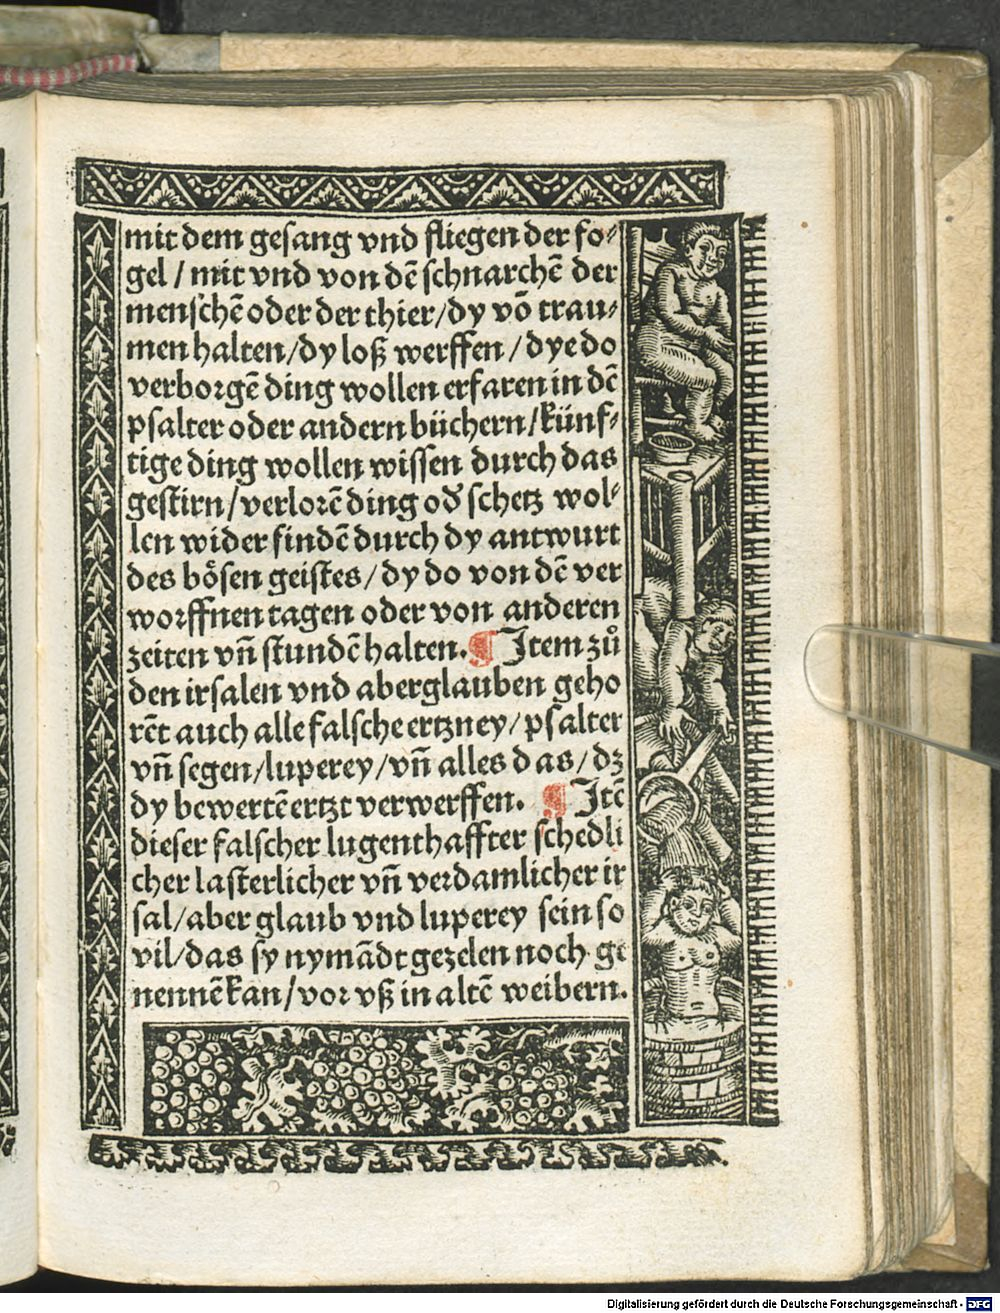 mit dem gesang vnd fliegen der fo⸗
gel / mit vnd von dē schnarchē der
menschē oder der thier/dy vō trau⸗
men halten/dy loß werffen / dye do
verborgē ding wollen erfaren in dē
psalter oder andern büchern/künf⸗
tige ding wollen wissen durch das
gestirn/verlorē ding od̕ schetz wol⸗
len wider findē durch dy antwurt
des bôsen geistes/dy do von dē ver
worffnen tagen oder von anderen
zeiten vn̄ stundē halten. ¶ Item zů
den irsalen vnd aberglauben geho
rēt auch alle falsche ertzney/psalter
vn̄ segen/luperey/vn̄ alles das/dz
dy bewertē ertzt verwerffen. ¶ Itē
dieser falscher lugenthaffter schedli
cher lasterlicher vn̄ verdamlicher ir
sal/aber glaub vnd luperey sein so
vil/das sy nymādt gezelen noch ge
nennē kan/vor vß in altē weibern.
Digitalisierung gefördert durch die Deutsche Forschungsgemeinschaft - DFG